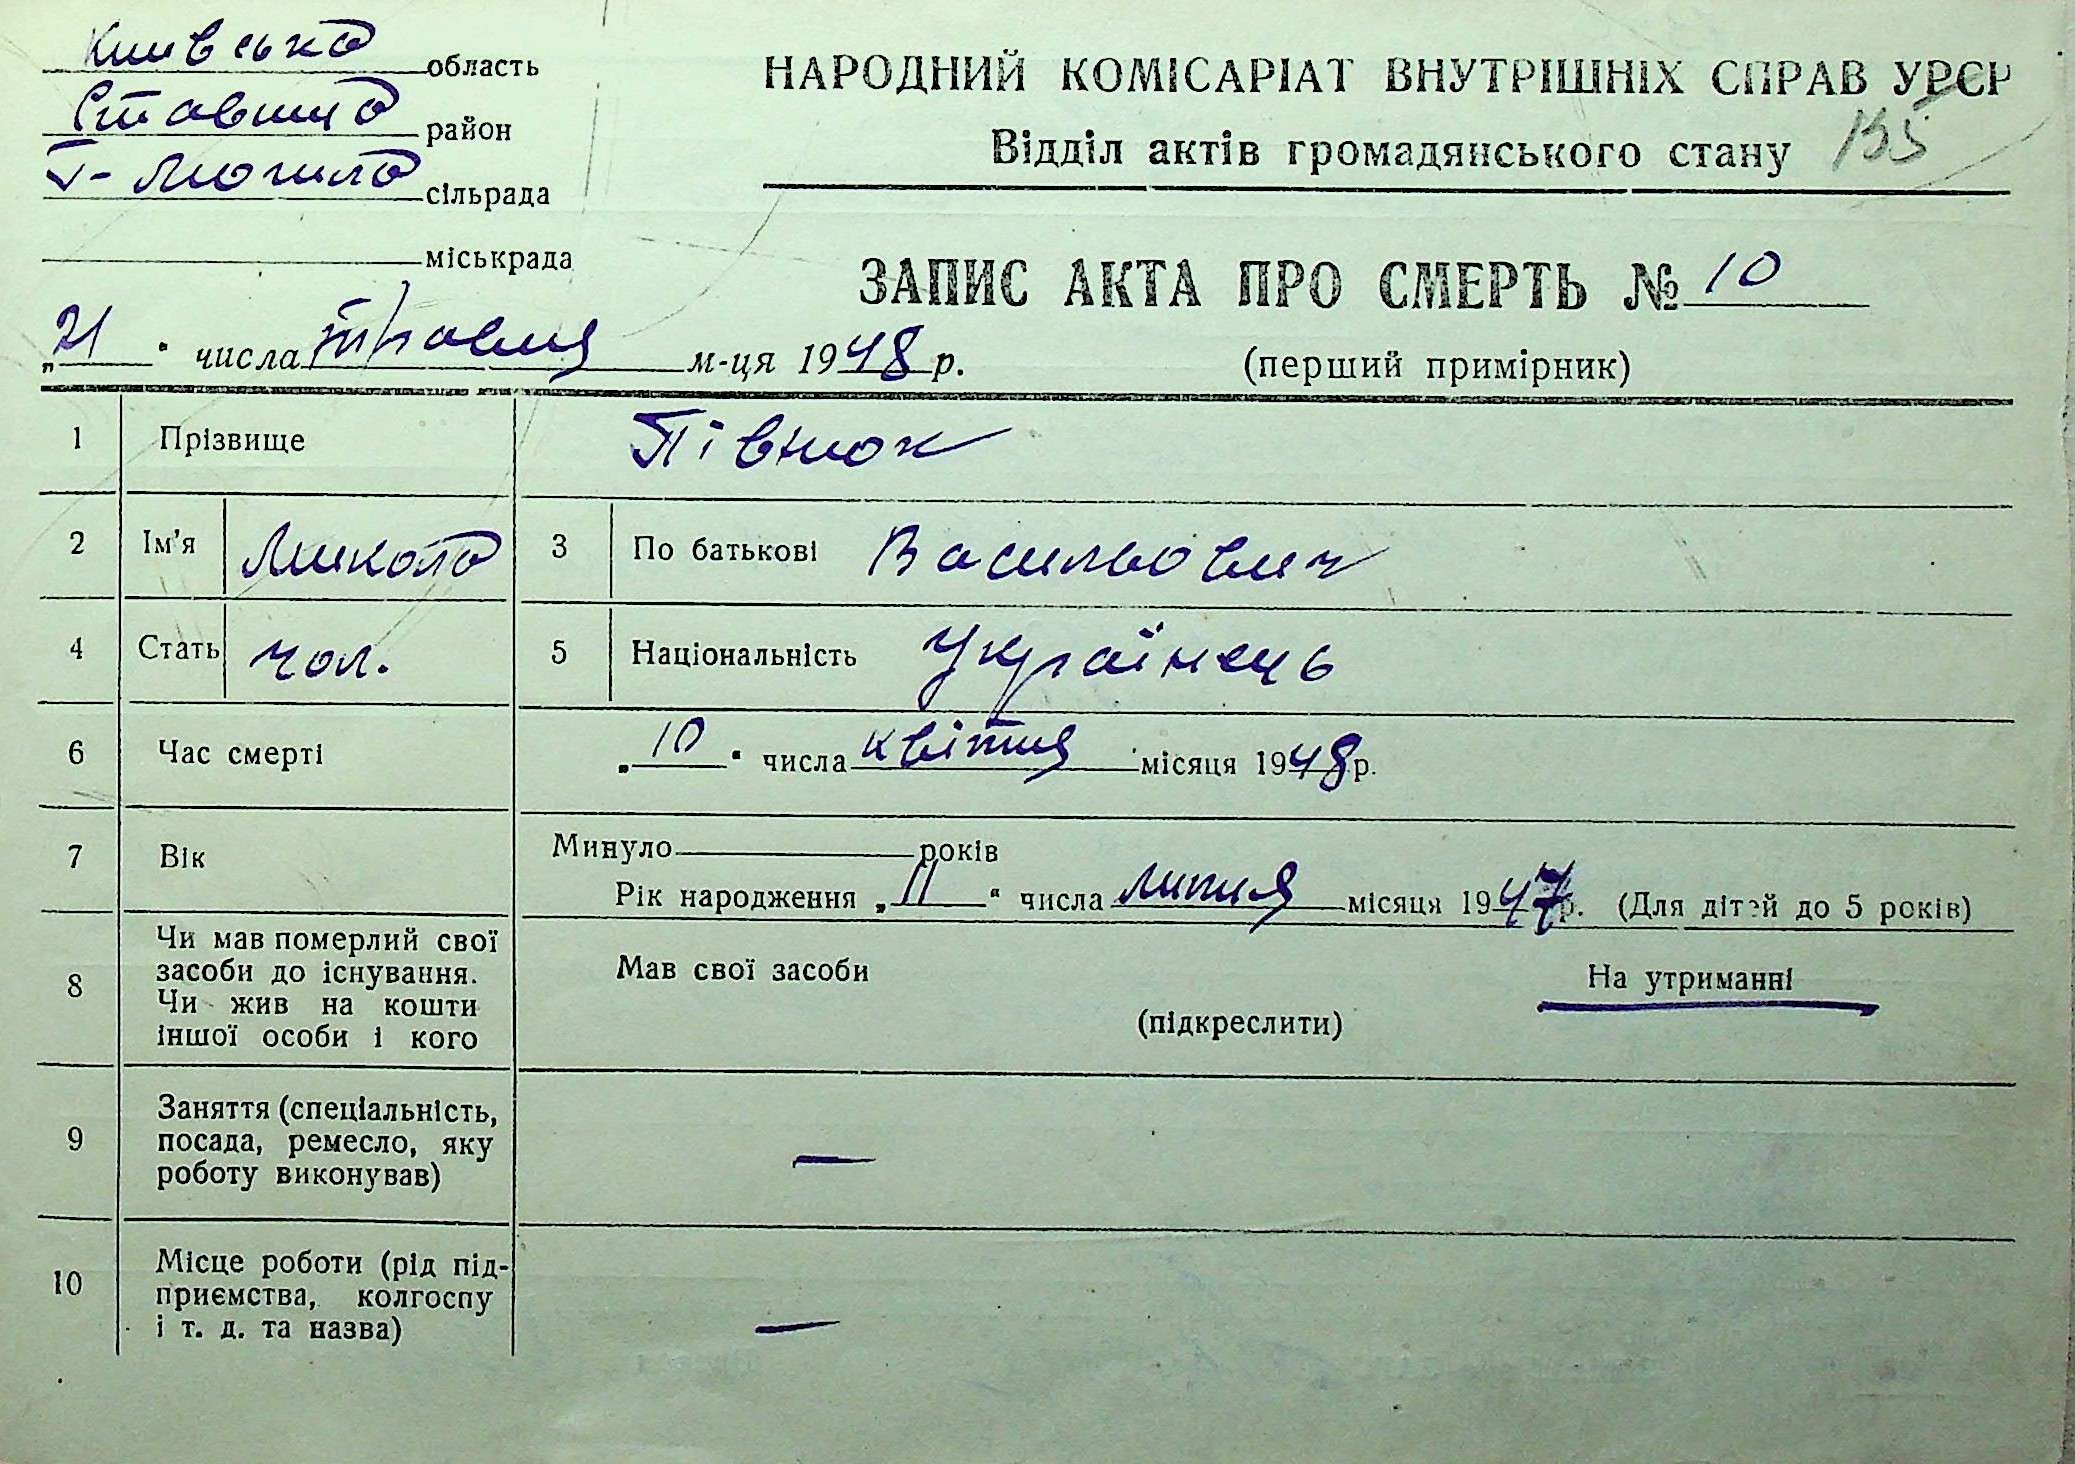 Київська область
Ставища район
Г-Могила сільрада
міськрада
НАРОДНИЙ КОМІСАРІАТ ВНУТРІШНІХ СПРАВ УРСР
Відділ актів громадянського стану 135
ЗАПИС АКТА ПРО СМЕРТЬ № 10
(перший примірник)
„21“ числа травня м-ця 1948 р.
1 Прізвище Півнюк
2 Ім'я Микола 3 По батькові Васильович
4 Стать чол. 5 Національність Українець
6 Час смерті „10“ числа квітня місяця 1948 р.
7 Вік Минуло років
Рік народження „11“ числа липня місяця 1947 р. (Для дітей до 5 років)
8 Чи мав померлий свої
засоби до існування.
Чи жив на кошти
іншої особи і кого
Мав свої засоби На утриманні
(підкреслити)
9 Заняття (спеціальність,
посада, ремесло, яку
роботу виконував)
—
10 Місце роботи (рід під-
приємства, колгоспу
і т. д. та назва)
—